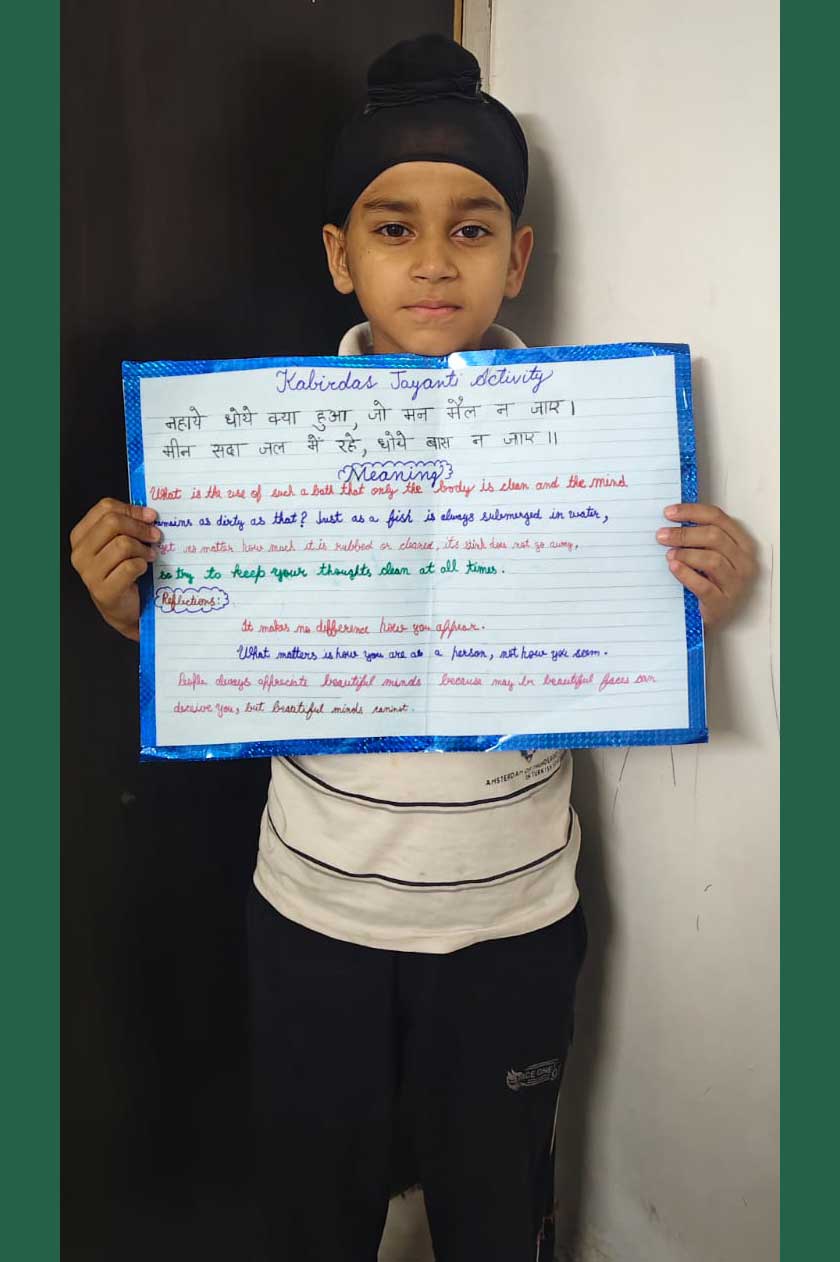 Kabirdas Jayanti Activity
नहाये धोये क्या हुआ, जो मन मैल न जाए।
मीन सदा जल में रहे, धोये बास न जाए।।
Meaning
What is the use of such a bath that only the body is clean and the mind
remains as dirty as that? Just as a fish is always submerged in water,
yet no matter how much it is rubbed or cleared, its stink does not go away,
so try to keep your thoughts clean at all times.
Reflections:
It makes no difference how you appear.
What matters is how you are as a person, not how you seem.
People always appreciate beautiful minds because may be beautiful faces can
deceive you, but beautiful minds cannot.
AMSTERDAM OF
IN TURKISH